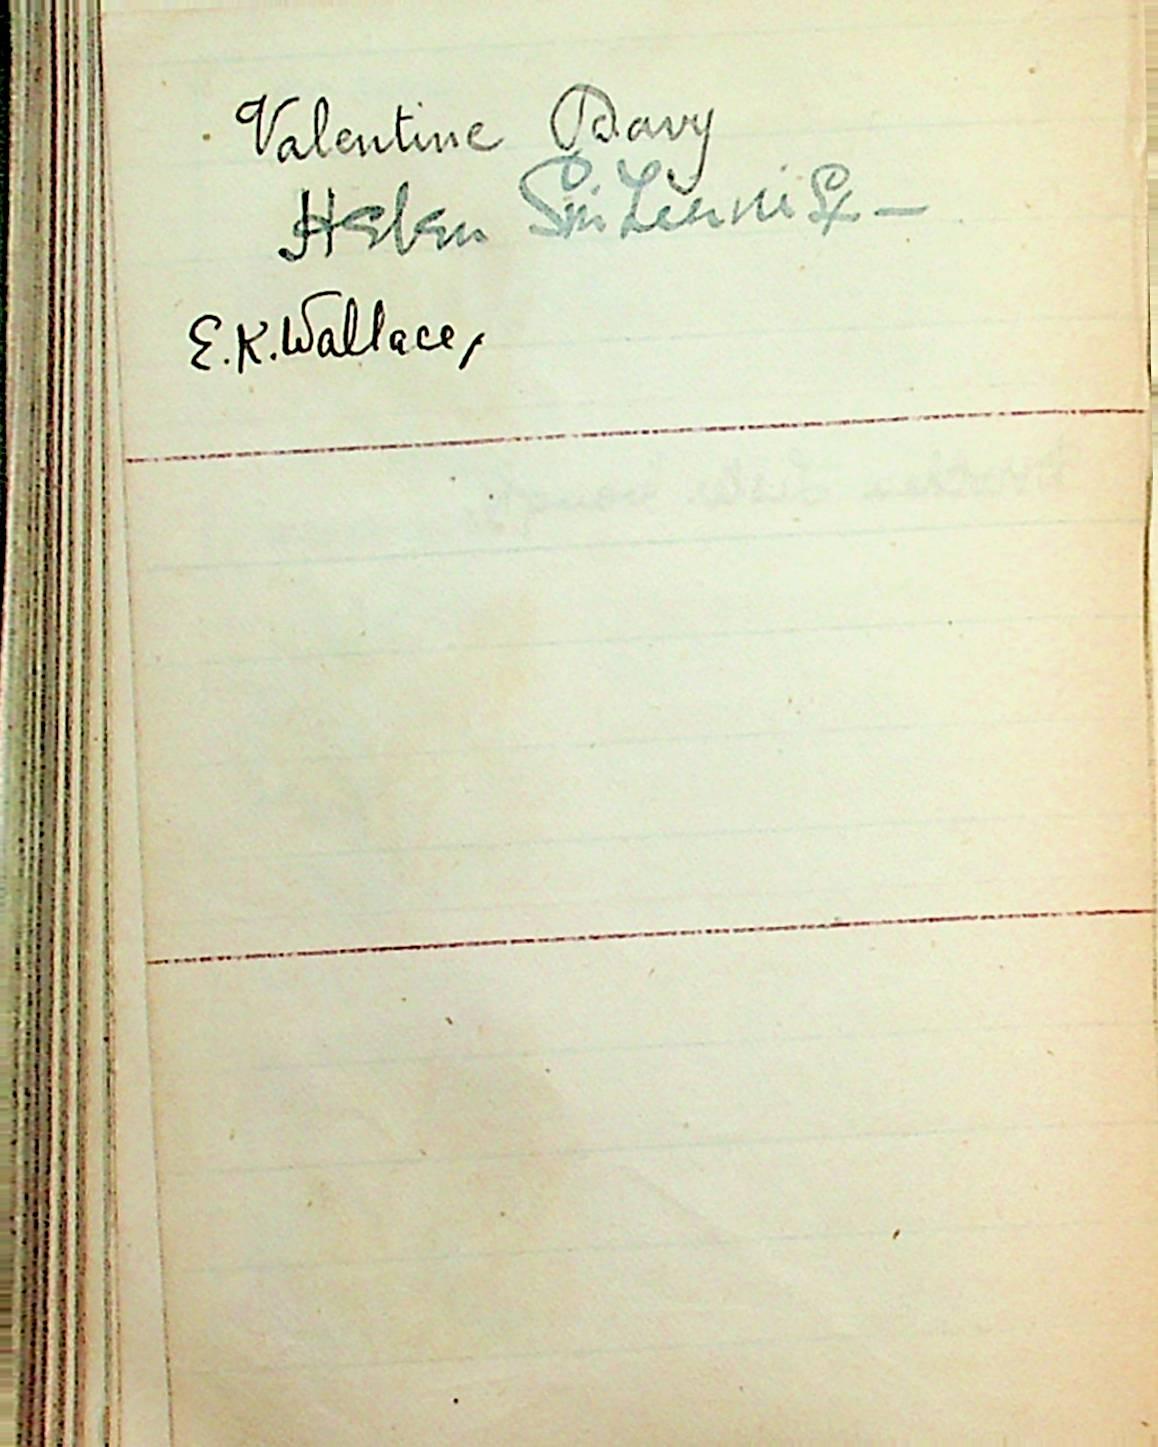 Valentine Davy
Helen
E.K. Wallace,